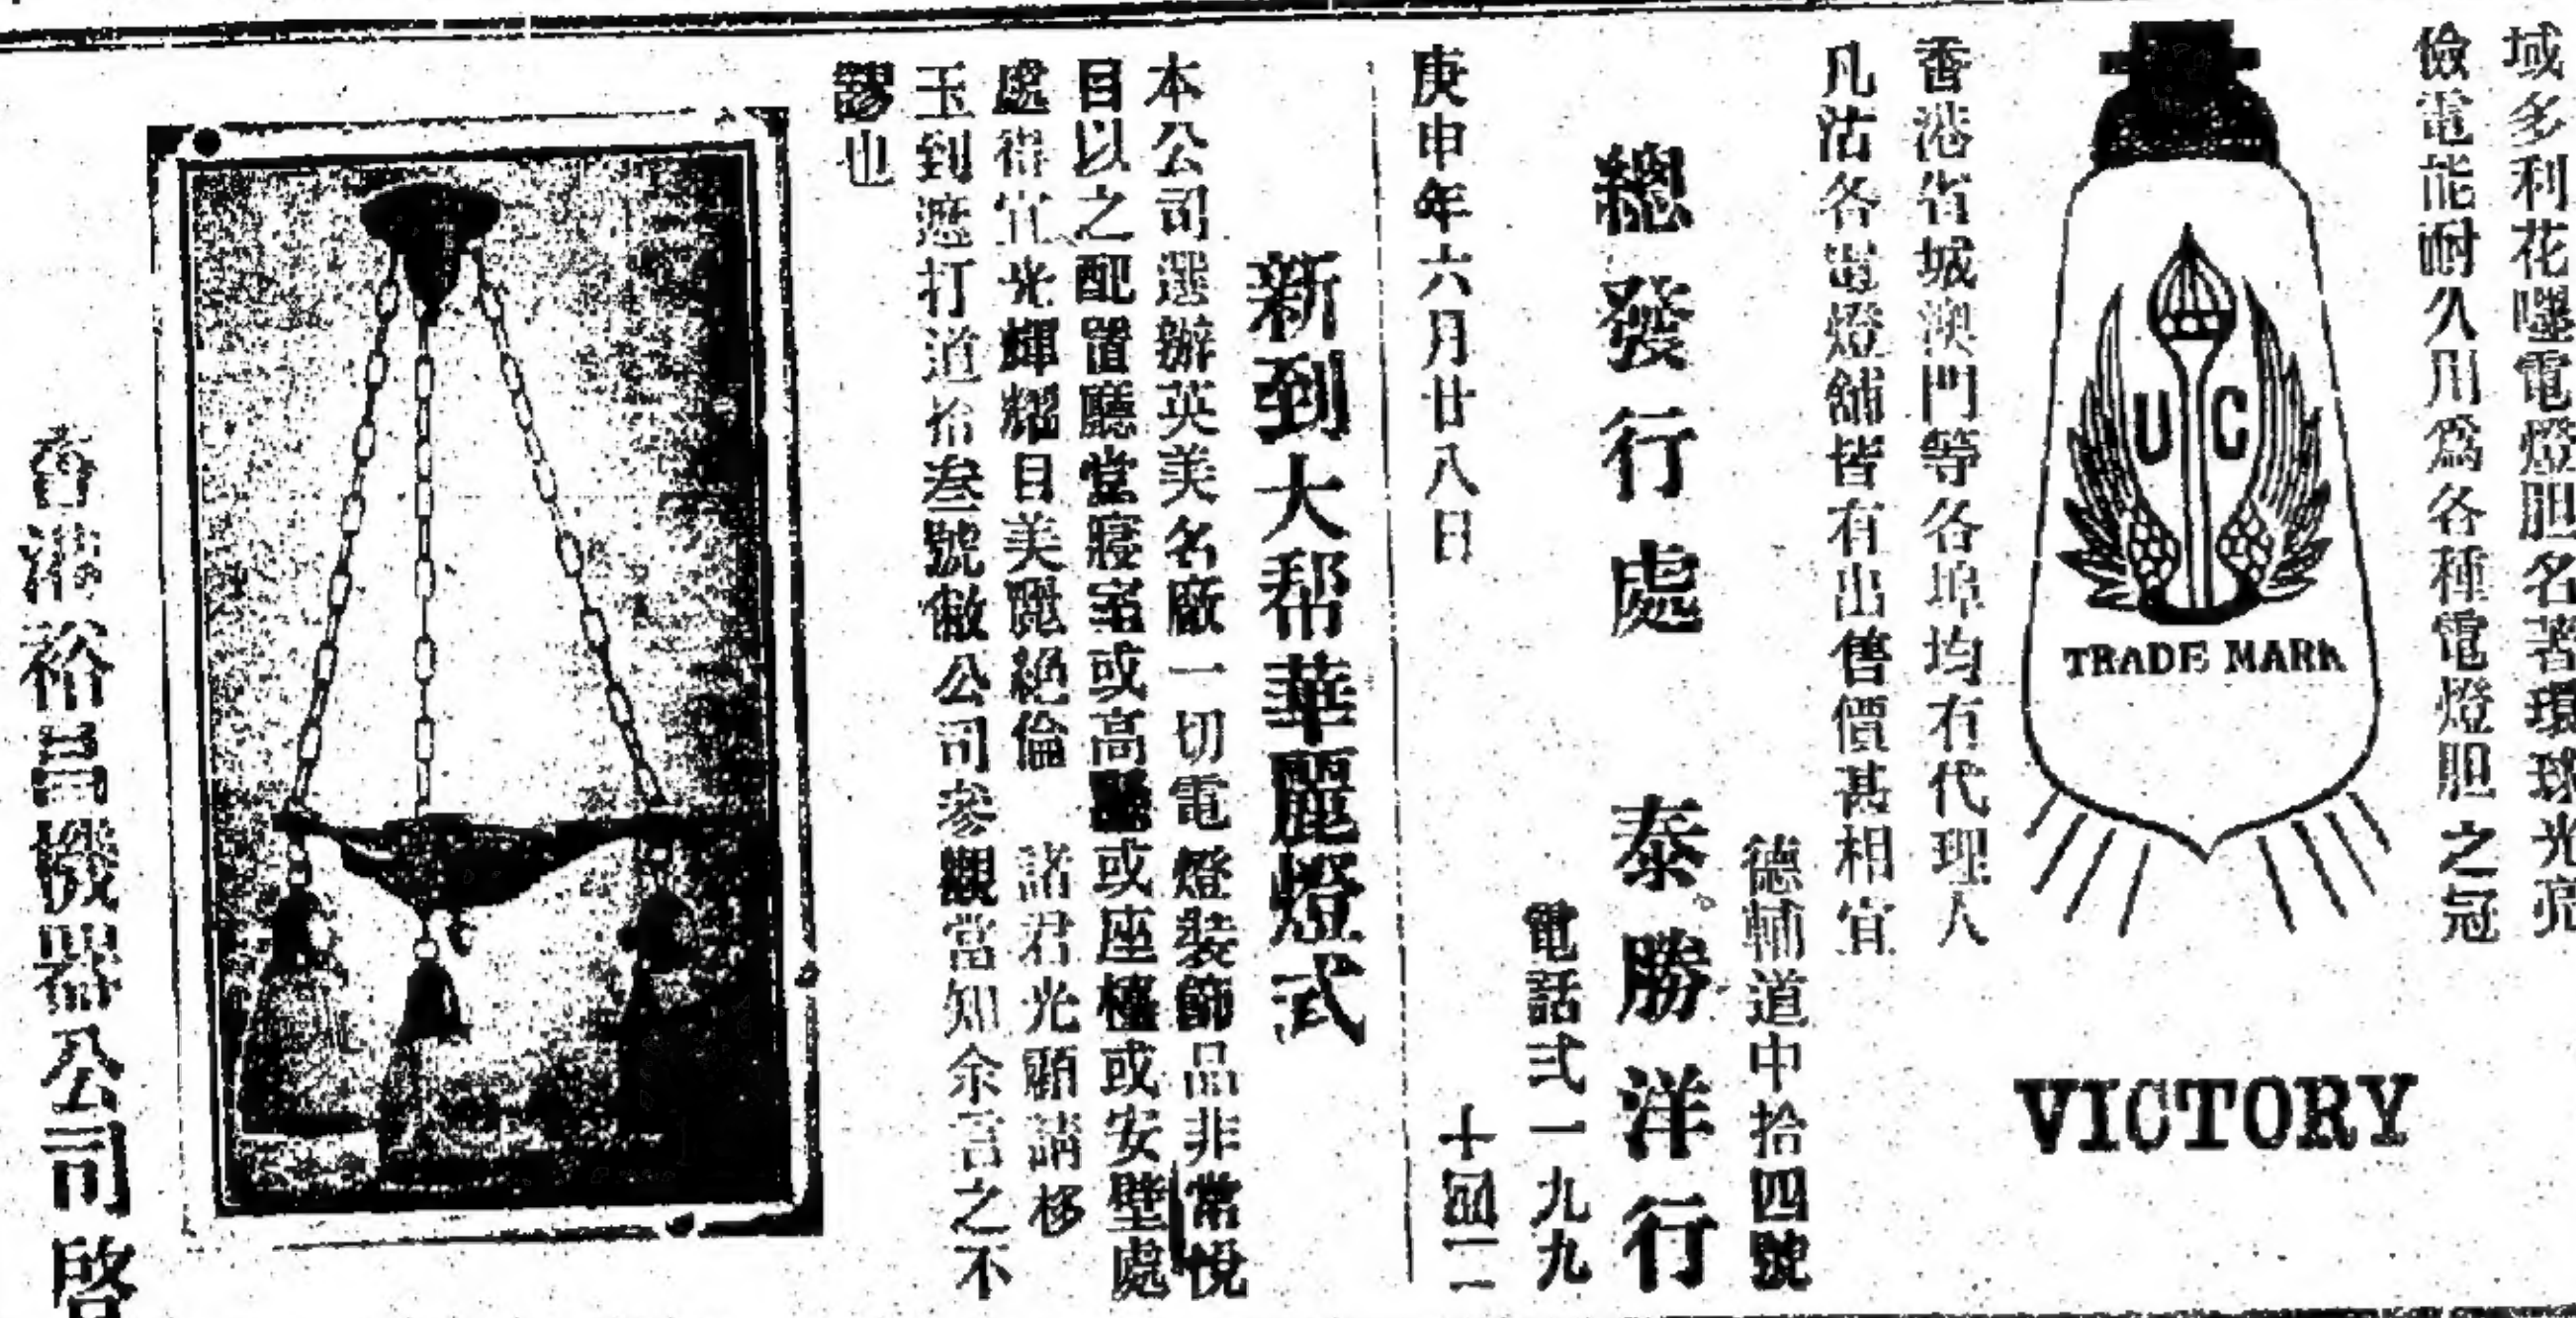 域多利花嘜電燈胆名著環球光亮
儉電能耐久用爲各種電燈胆之冠
U C
TRADE MARK
VICTORY
香港省城澳門等各埠均有代理人
凡沽各電燈舖皆有出售價甚相宜
德輔道中拾四號
總發行處 泰勝洋行
電話弍一九九
庚申年六月廿八日
新到大帮華麗燈式
本公司選辦英美名廠一切電燈裝飾品非常悅
目以之配置廳堂寢室或高 或座檯或安壁處
處得宜光輝耀目美麗絕倫 諸君光顧請移
玉到遮打道拾叁號敝公司參觀當知余言之不
謬也
香港裕昌機器公司啓